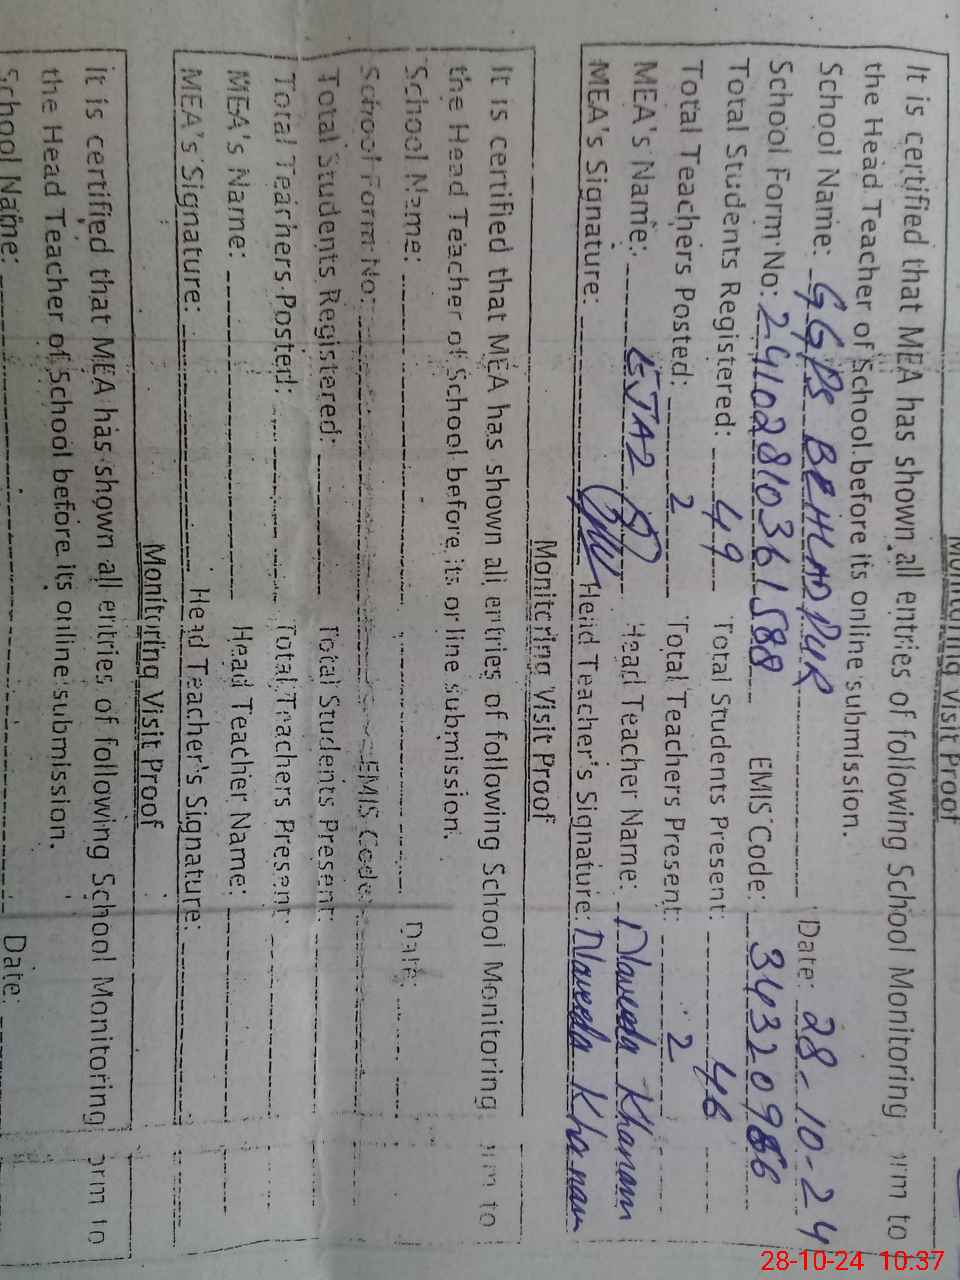 Monitoring Visit Proof
It is certified that MEA has shown all entries of following School Monitoring orm to
the Head Teacher of School before its online submission.
School Name: GGPS BEHLAD PUR Date: 28-10-24
School Form No: 2410281036 1588 EMIS Code: 34320986
Total Students Registered: 49 Total Students Present: 46
Total Teachers Posted: 2 Total Teachers Present: 2
MEA's Name: Head Teacher Name: Naveeda Khanam
MEA's Signature: Head Teacher's Signature: Naveeda Khanam
Monitoring Visit Proof
It is certified that MEA has shown all entries of following School Monitoring rm to
the Head Teacher of School before its online submission.
School Name: Date:
School Form No: EMIS Code:
Total Students Registered: Total Students Present:
Total Teachers Posted: Total Teachers Present:
MEA's Name: Head Teacher Name:
MEA's Signature: Head Teacher's Signature:
Monitoring Visit Proof
It is certified that MEA has shown all entries of following School Monitoring orm to
the Head Teacher of School before its online submission.
School Name: Date:
28-10-24 10:37